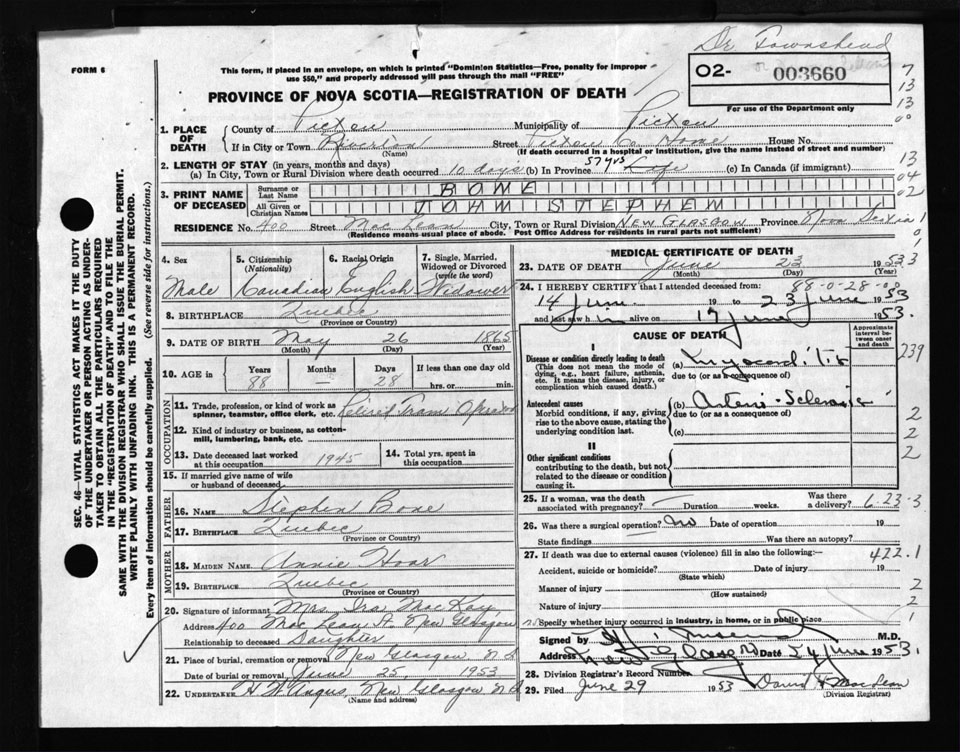 Dr Townshend
FORM 6
This form, if placed in an envelope, on which is printed "Dominion Statistics—Free, penalty for improper
use $50," and properly addressed will pass through the mail "FREE"
O2- 003660
PROVINCE OF NOVA SCOTIA—REGISTRATION OF DEATH
For use of the Department only
7
13
13
00
13
04
02
1. PLACE OF DEATH County of Pictou Municipality of Pictou
If in City or Town Riverton Street Pictou Co Home House No.
(Name) (If death occurred in a hospital or institution, give the name instead of street and number)
2. LENGTH OF STAY (in years, months and days)
(a) In City, Town or Rural Division where death occurred 10 days (b) In Province 57 yrs Life (c) In Canada (if immigrant)
3. PRINT NAME OF DECEASED Surname or Last Name BONE
All Given or Christian Names JOHN STEPHEN
RESIDENCE No. 400 Street MacLean City, Town or Rural Division NEW GLASGOW Province Nova Scotia
(Residence means usual place of abode. Post Office Address for residents in rural parts not sufficient)
4. Sex Male
5. Citizenship (Nationality) Canadian
6. Racial Origin English
7. Single, Married, Widowed or Divorced (write the word) Widower
8. BIRTHPLACE Quebec
(Province or Country)
9. DATE OF BIRTH May 26 1865
(Month) (Day) (Year)
10. AGE in Years 88 Months — Days 28 If less than one day old
hrs. or min.
OCCUPATION
11. Trade, profession, or kind of work as spinner, teamster, office clerk, etc. Retired Tram Operator
12. Kind of industry or business, as cotton-mill, lumbering, bank, etc.
13. Date deceased last worked at this occupation 1945
14. Total yrs. spent in this occupation
15. If married give name of wife or husband of deceased
FATHER
16. NAME Stephen Bone
17. BIRTHPLACE Quebec
(Province or Country)
MOTHER
18. MAIDEN NAME Annie Hoar
19. BIRTHPLACE Quebec
(Province or Country)
20. Signature of informant Mrs. Ira MacKay
Address 400 MacLean St. New Glasgow
Relationship to deceased Daughter
21. Place of burial, cremation or removal New Glasgow N.S.
Date of burial or removal June 25 1953
22. UNDERTAKER H. W. Angus, New Glasgow N.S.
(Name and address)
MEDICAL CERTIFICATE OF DEATH
23. DATE OF DEATH June 23 1953
(Month) (Day) (Year)
24. I HEREBY CERTIFY that I attended deceased from: 88-0-28-0
14 June 19 to 23 June 1953
and last saw h im alive on 17 June 1953.
CAUSE OF DEATH
Approximate interval between onset and death
I
Disease or condition directly leading to death
(This does not mean the mode of dying, e.g., heart failure, asthenia, etc. It means the disease, injury, or complication which caused death.)
(a) Myocarditis
due to (or as a consequence of)
239
Antecedent causes
Morbid conditions, if any, giving rise to the above cause, stating the underlying condition last.
(b) Arterio-Sclerosis
due to (or as a consequence of)
(c)
2
2
2
II
Other significant conditions
contributing to the death, but not related to the disease or condition causing it.
25. If a woman, was the death associated with pregnancy? — Duration weeks. Was there a delivery? 6.23-3
26. Was there a surgical operation? no Date of operation 19
State findings Was there an autopsy?
27. If death was due to external causes (violence) fill in also the following:— 422.1
Accident, suicide or homicide? Date of injury 19
(State which)
Manner of injury 2
(How sustained)
Nature of injury 2
Specify whether injury occurred in industry, in home, or in public place 1
Signed by M.D.
Address New Glasgow Date 24 June 1953.
28. Division Registrar's Record Number
29. Filed June 29 1953 David MacLean
(Division Registrar)
SEC. 46—VITAL STATISTICS ACT MAKES IT THE DUTY
OF THE UNDERTAKER OR PERSON ACTING AS UNDER-
TAKER TO OBTAIN ALL THE PARTICULARS REQUIRED
IN THE "REGISTRATION OF DEATH" AND TO FILE THE
SAME WITH THE DIVISION REGISTRAR WHO SHALL ISSUE THE BURIAL PERMIT.
WRITE PLAINLY WITH UNFADING INK. THIS IS A PERMANENT RECORD.
Every item of information should be carefully supplied. (See reverse side for instructions.)